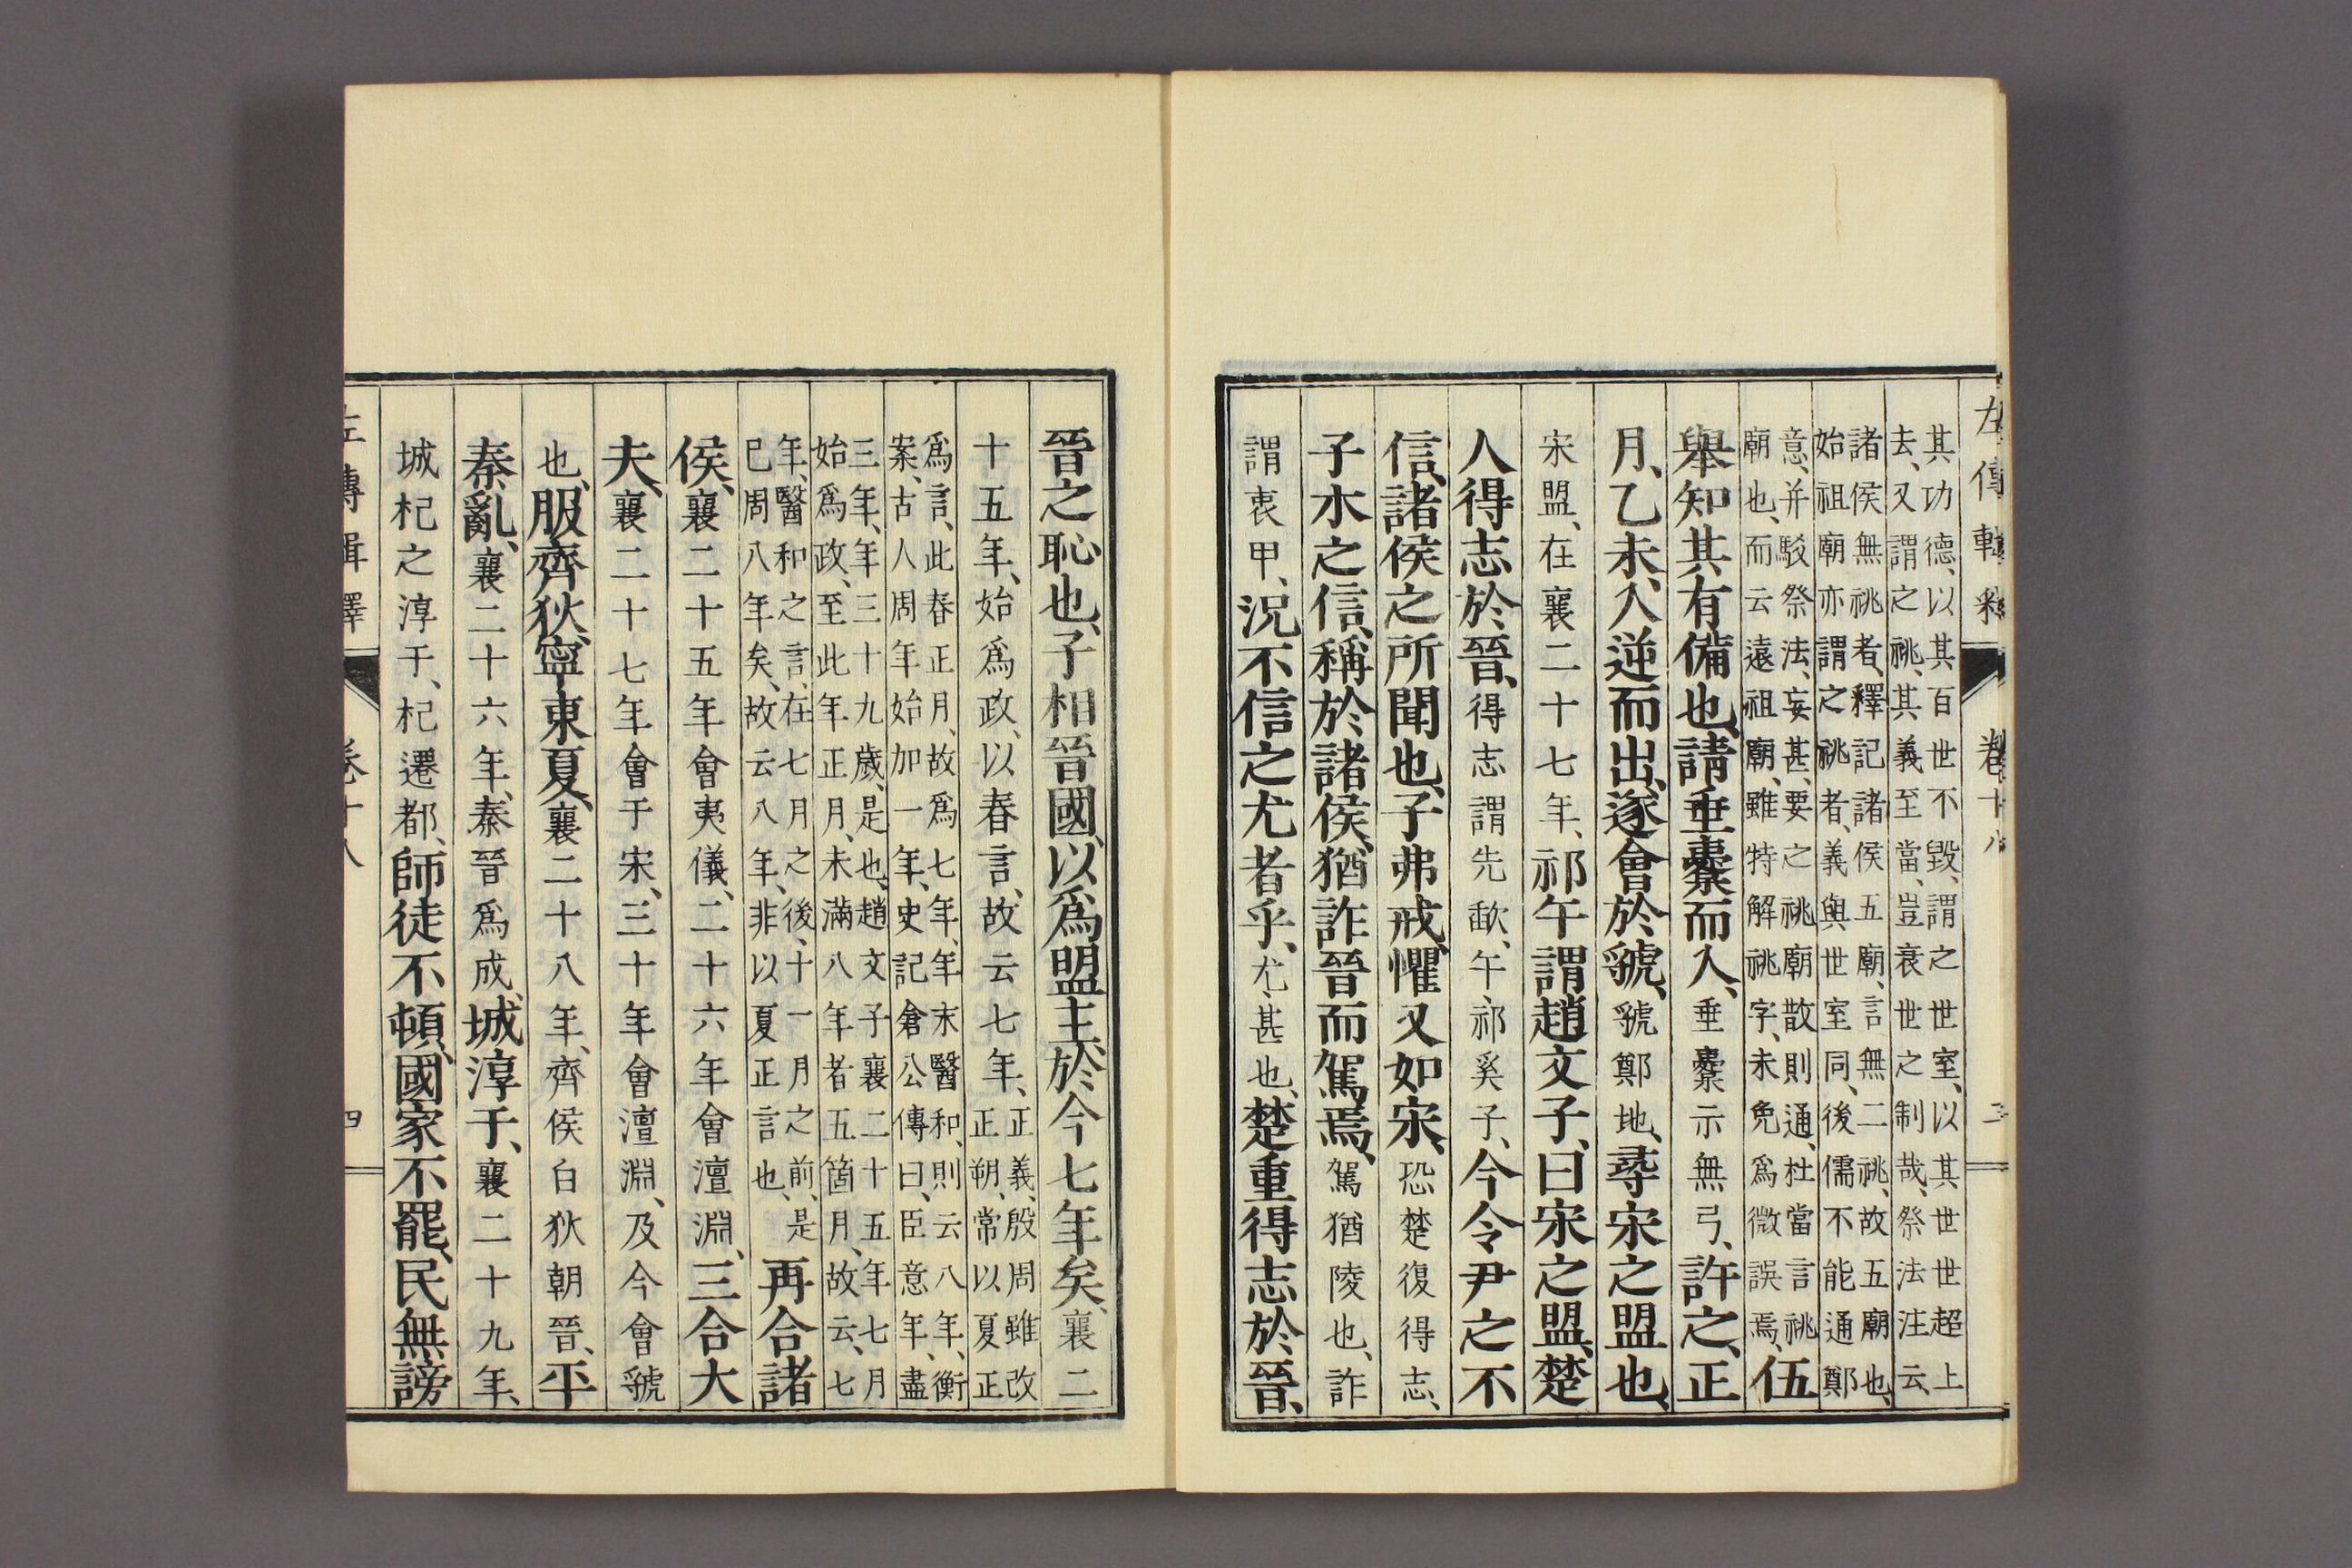 左傳輯釋 卷十八
其功德、以其百世不毀、謂之世室、以其世世超上
去、又謂之祧、其義至當、豈衰世之制哉、祭法注云、
諸侯無祧者、釋記諸侯五廟、言無二祧、故五廟也、
始祖廟亦謂之祧者、義與世室同、後儒不能通鄭
意、并駁祭法、妄甚、要之祧廟散則通、杜當言祧
廟也、而云遠祖廟、雖特解祧字、未免爲微誤焉、伍
舉知其有備也、請垂櫜而入、垂櫜示無弓、許之、正
月、乙未、入逆而出、遂會於虢、虢鄭地、尋宋之盟也、
宋盟、在襄二十七年、祁午謂趙文子、曰宋之盟、楚
人得志於晉、得志謂先歃、午、祁奚子、今令尹之不
信、諸侯之所聞也、子弗戒、懼又如宋、恐楚復得志、
子木之信、稱於諸侯、猶詐晉而駕焉、駕猶陵也、詐
謂衷甲、況不信之尤者乎、尤、甚也、楚重得志於晉、
晉之恥也、子相晉國、以爲盟主、於今七年矣、襄二
十五年、始爲政、以春言、故云七年、正義、殷周雖改
正朔、常以夏正
爲言、此春正月、故爲七年、年末醫和、則云八年、衡
案、古人周年始加一年、史記倉公傳曰、臣意年、盡
三年、年三十九歲、是也、趙文子襄二十五年七月
始爲政、至此年正月、未滿八年者五箇月、故云、七
年、醫和之言、在七月之後、十一月之前、是
已周八年矣、故云八年、非以夏正言也、再合諸
侯、襄二十五年會夷儀、二十六年會澶淵、三合大
夫、襄二十七年會于宋、三十年會澶淵、及今會虢
也、服齊狄、寧東夏、襄二十八年、齊侯白狄朝晉、平
秦亂、襄二十六年、秦晉爲成、城淳于、襄二十九年、
城杞之淳于、杞遷都、師徒不頓、國家不罷、民無謗
左傳輯釋 卷十八 四